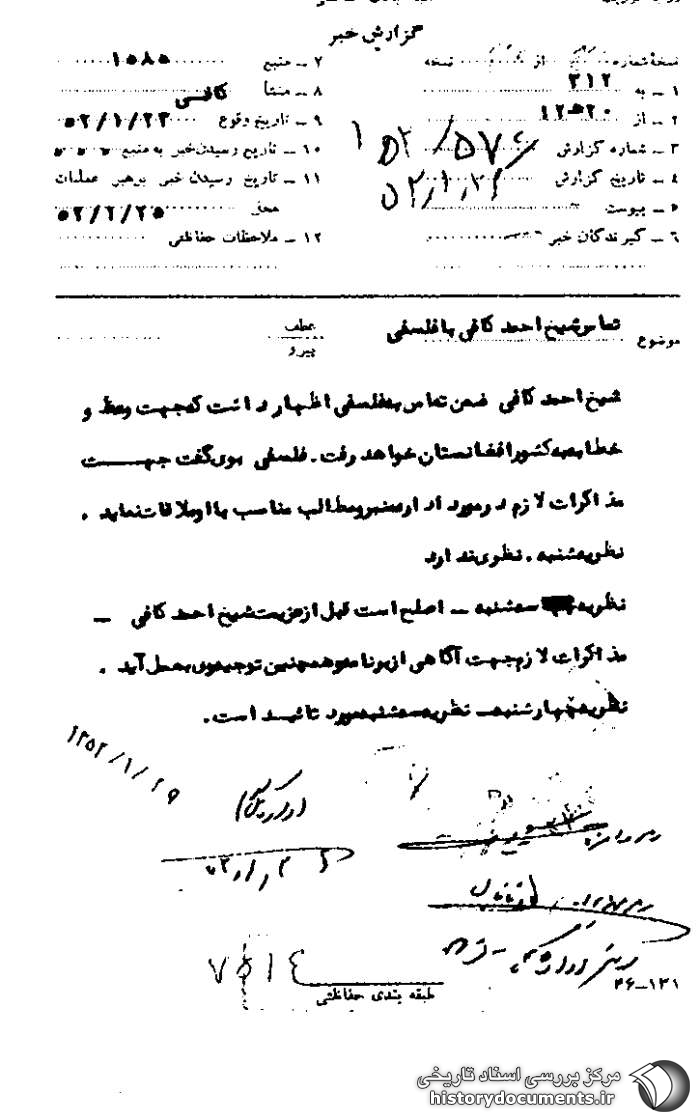 گزارش خبر
نسخهٔ شماره از نسخه
۱ – به ۳۱۲
۲ – از ۱۲ ﻫ ۲۰
۳ – شماره گزارش
۴ – تاریخ گزارش
۵ – پیوست
۶ – گیرندگان خبر
۷ – منبع ۱۵۸۵
۸ – منشأ کافی
۹ – تاریخ وقوع ۵۲/۱/۲۳
۱۰ – تاریخ رسیدن خبر به منبع
۱۱ – تاریخ رسیدن خبر برهبر عملیات
محل ۵۲/۲/۲۵
۱۲ – ملاحظات حفاظتی
موضوع تماس شیخ احمد کافی با فلسفی
عطف
پیرو
شیخ احمد کافی ضمن تماس بفلسفی اظهار داشت که جهت وعظ و
خطابه به کشور افغانستان خواهد رفت. فلسفی بوی گفت جهت
مذاکرات لازم در مورد اداره منبر و مطالب مناسب با او ملاقات نماید.
نظریه شنبه. نظری ندارد
نظریه سه شنبه – اصلح است قبل از عزیمت شیخ احمد کافی –
مذاکرات لازم جهت آگاهی از برنامه و همچنین توجیه وی بعمل آید.
نظریه چهارشنبه – نظریه سه شنبه مورد تائید است.
۱۳۵۲/۱/۲۹
۷۵۱۴
طبقه بندی حفاظتی
۲۶–۱۳۱
مرکز بررسی اسناد تاریخی
historydocuments.ir